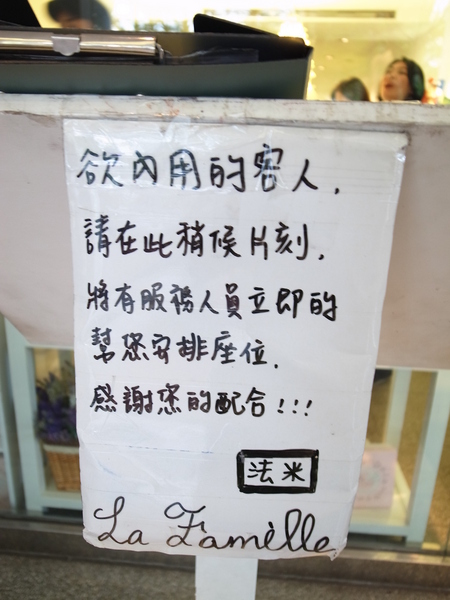 欲內用的客人，
請在此稍候片刻，
將有服務人員立即的
幫您安排座位，
感謝您的配合!!!
法米
La Famèlle